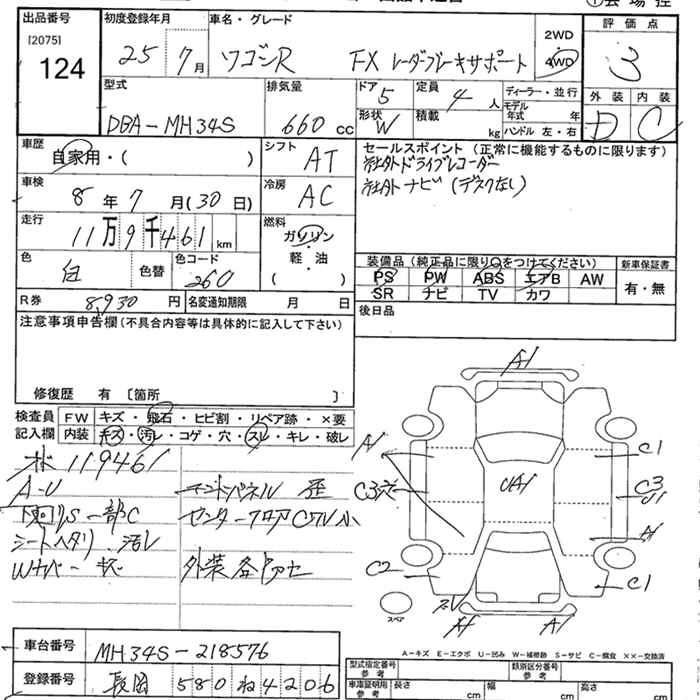 出品番号
[2075]
124
初度登録年月
25 年 7 月
車名・グレード
ワゴンR FX レーダーブレーキサポート
2WD
4WD
評価点
3
外装 内装
D C
型式
DBA-MH34S
排気量
660 cc
ドア 5
形状 W
定員 4 人
積載 kg
ディーラー・並行
モデル年式 年
ハンドル 左・右
車歴
自家用・( )
シフト AT
車検
8 年 7 月(30日)
冷房 AC
走行
11万9千461 km
燃料
ガソリン
軽・油
( )
色 白 色替
色コード 260
R券 8,930 円
名変通知期限 月 日
セールスポイント (正常に機能するものに限ります)
社外ドライブレコーダー
社外ナビ (デスクなし)
装備品 (純正品に限り○をつけてください)
PS PW ABS エアB AW
SR ナビ TV カワ
新車保証書
有・無
後日品
注意事項申告欄(不具合内容等は具体的に記入して下さい)
修復歴 有 [箇所 ]
検査員記入欄
FW キズ・飛石・ヒビ割・リペア跡・×要
内装 キズ・汚レ・コゲ・穴・スレ・キレ・破レ
119461
A-U
下回りS一部C
シートヘタリ 汚レ
フロントパネル 歪
A1
A1
C1
C3
C3
UA1
C2
C1
スペア
A-キズ E-エクボ U-凹み W-補修跡 S-サビ C-腐食 ××-交換済
車台番号 MH34S-218576
登録番号 長岡 580 ね 4206
型式指定番号 参考
類別区分番号 参考
車庫証明用 参考
長さ 幅 高さ